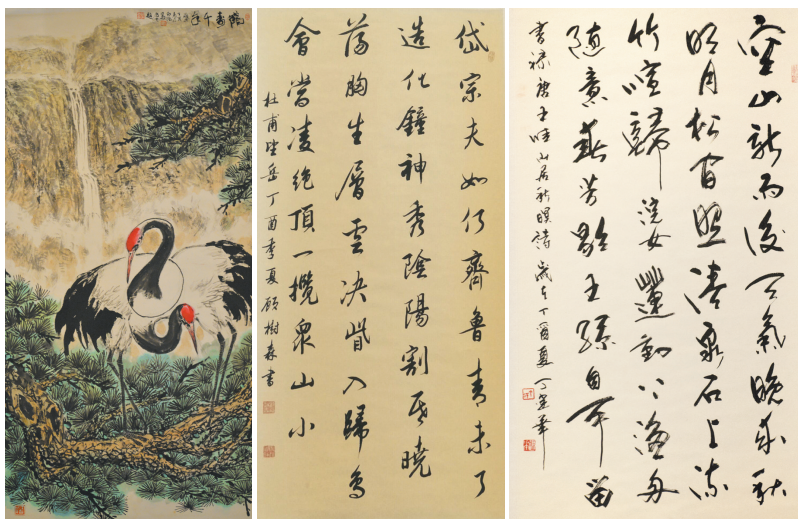 鶴壽千年
岱宗夫如何齊魯青未了
造化鐘神秀陰陽割昏曉
蕩胸生層雲決眥入歸鳥
會當凌絕頂一攬衆山小
杜甫望岳丁酉季夏顧樹森書
空山新雨後天氣晚來秋
明月松間照清泉石上流
竹喧歸浣女蓮動下漁舟
隨意春芳歇王孫自可留
書錄唐王維山居秋暝詩歲在丁酉夏丁